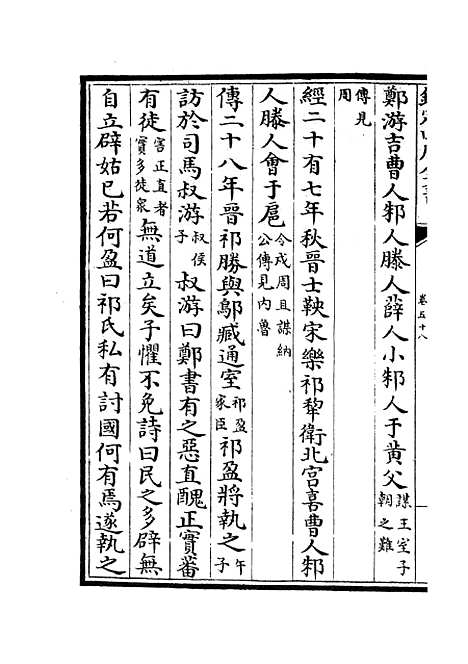 卷五十八
鄭游吉曹人邾人滕人薛人小邾人于黃父謀王室子朝之難
傳見周
經二十有七年秋晉士鞅宋樂祁犂衛北宮喜曹人邾
人滕人會于扈令戍周且謀納公傳見内魯
傳二十八年晉祁勝與鄔臧通室祁盈家臣祁盈將執之午子
訪於司馬叔游叔侯子叔游曰鄭書有之惡直醜正實蕃
有徒害正直者實多徒衆無道立矣子懼不免詩曰民之多辟無
自立辟姑已若何盈曰祁氏私有討國何有焉遂執之